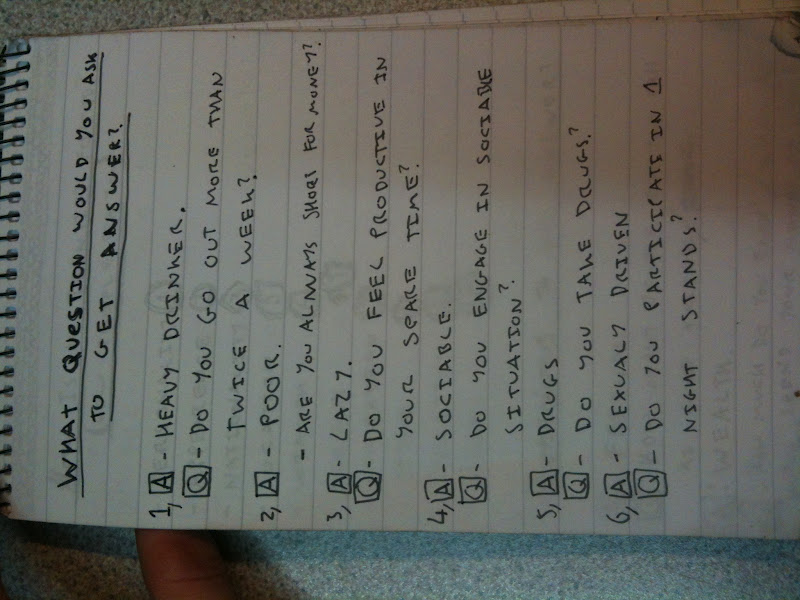 WHAT QUESTION WOULD YOU ASK
TO GET ANSWER?
1, A - HEAVY DRINKER.
Q - DO YOU GO OUT MORE THAN
TWICE A WEEK?
2, A - POOR.
- ARE YOU ALWAYS SHORT FOR MONEY?
3, A - LAZY.
Q - DO YOU FEEL PRODUCTIVE IN
YOUR SPARE TIME?
4, A - SOCIABLE.
Q - DO YOU ENGAGE IN SOCIABLE
SITUATION?
5, A - DRUGS
Q - DO YOU TAKE DRUGS?
6, A - SEXUALY DRIVEN
Q - DO YOU PARTICIPATE IN 1
NIGHT STANDS?